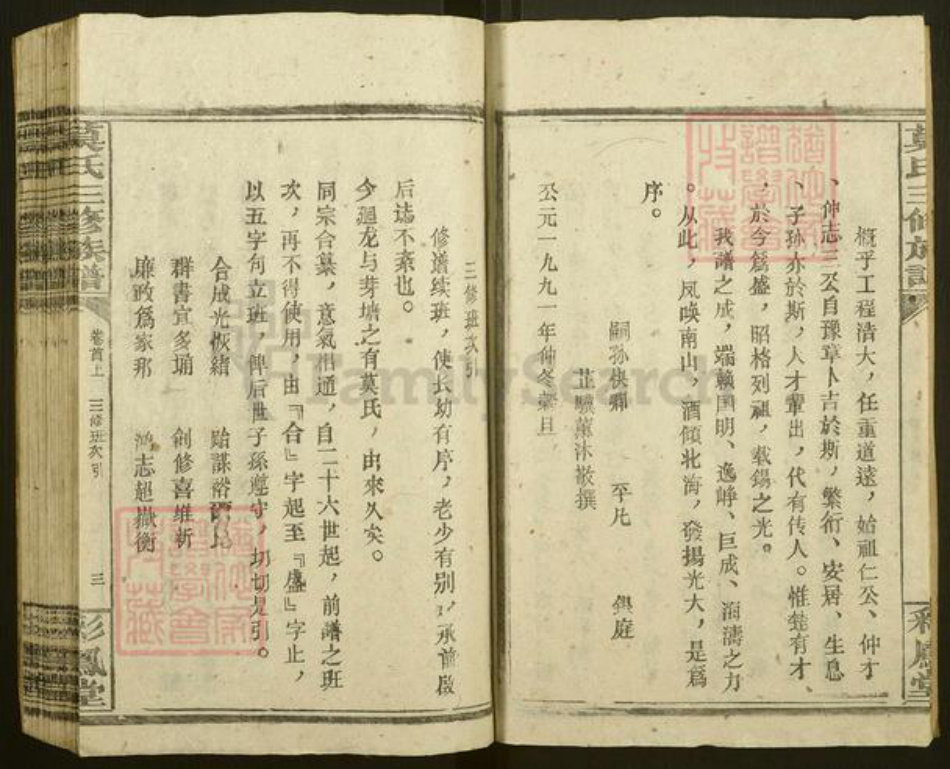 概乎工程浩大，任重道遠，始祖仁公、仲才
、仲志三公自豫章卜吉於斯，繁衍、安居、生息
、子孙亦於斯，人才輩出，代有传人。惟楚有才
，於今爲盛，昭格列祖，载錫之光。
我譜之成，端赖国明、逸峥、巨成、海濤之力
。从此，凤唤南山，酒傾北海，發揚光大，是爲
序。
嗣孙 平凡 與庭
薰沐敬撰
公元一九九一年仲冬 旦
三修班次引
修谱续班，使长幼有序，老少有别，承前啟
后迏不紊也。
今廻龙与芽塘之有莫氏，由來久矣。
同宗合纂，意氣相通，自二十六世起，前譜之班
次，再不得使用，由『合』字起至『盛』字止，
以五字句立班，俾后世子孫遵守，切切是引。
合成光恢緒 贻謀裕
群書宜多誦 創修喜維新
廉政爲家邦 鴻志超嶽衡
莫氏三修族譜
卷首上
三修班次引
三
彩鳳堂
莫氏三修族譜
彩鳳堂
FamilySearch